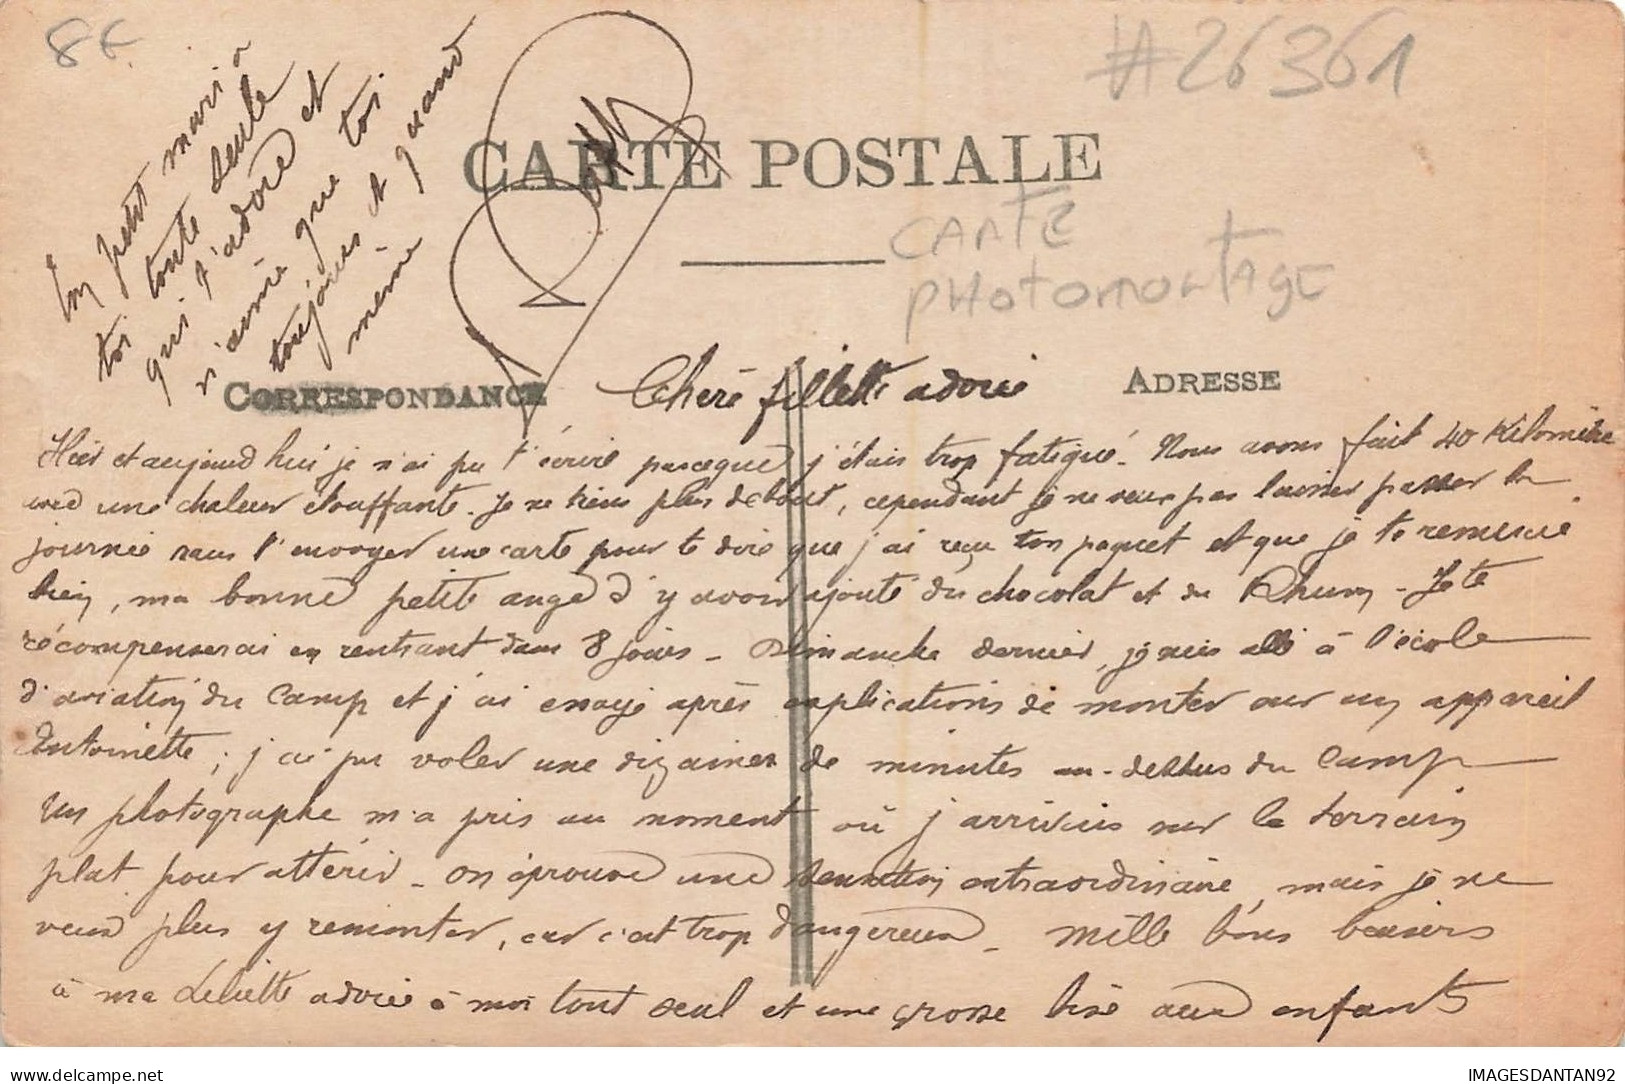 8€
#26361
CARTE POSTALE
CARTE
PHOTOMONTAGE
Ton petit mari à
toi toute seule
qui t'adore et
n'aime que toi
toujours et quand
même
CORRESPONDANCE
ADRESSE
Chère fillette adorée
Hier et aujourd'hui je n'ai pu t'écrire parceque j'étais trop fatigué. Nous avons fait 40 Kilomètre
avec une chaleur étouffante. Je ne tiens plus debout, cependant je ne veux pas laisser passer la
journée sans t'envoyer une carte pour te dire que j'ai reçu ton paquet et que je te remercie
bien, ma bonne petite ange d'y avoir ajouté du chocolat et du Rhum - Je te
récompenserai en rentrant dans 8 jours - Dimanche dernier, je suis allé à l'école
d'aviation du Camp et j'ai essayé après explications de monter sur un appareil
Antoinette ; j'ai pu voler une dizaines de minutes au-dessus du Camp
Un photographe m'a pris au moment où j'arrivais sur le terrain
plat pour attérir - On éprouve une sensation extraordinaire, mais je ne
veux plus y remonter, car c'est trop dangereux - Mille bons baisers
à ma Liliette adorée à moi tout seul et une grosse bise aux enfants
IMAGESDANTAN92